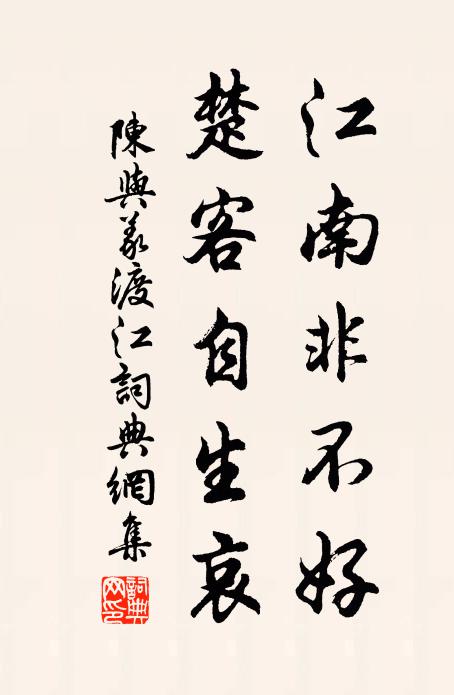 江南非不好
楚客自生哀
陳與義渡江詞典網集
詞典网印